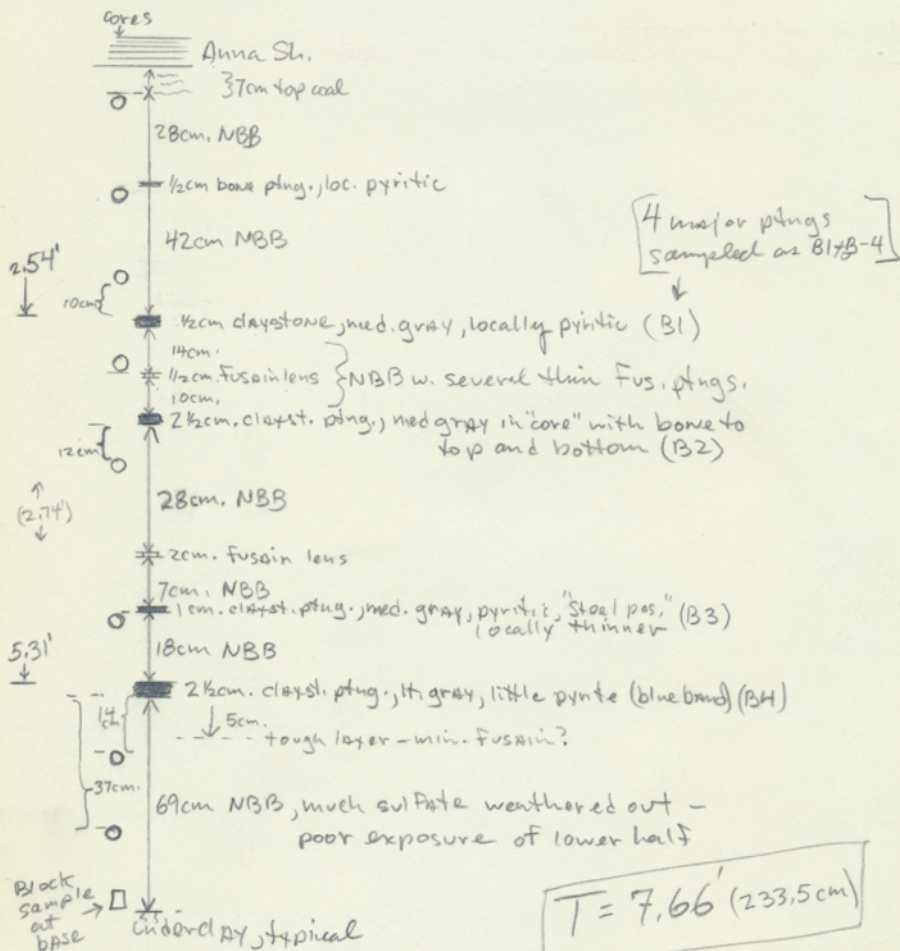 cores
Anna Sh.
}7cm top coal
28cm. NBB
½cm bone ptng., loc. pyritic
42cm NBB
4 major ptngs
sampled as B1→B-4
2.54'
10cm
½cm claystone, med. gray, locally pyritic (B1)
14cm.
½cm. Fusain lens } NBB w. several thin Fus. ptngs.
10cm.
2½cm. clayst. ptng., med gray in "core" with bone to
top and bottom (B2)
12cm
28cm. NBB
(2.74')
2cm. Fusain lens
7cm. NBB
1cm. clayst. ptng., med. gray, pyritic, "Steel pos." (B3)
locally thinner
5.31'
18cm NBB
2½cm. clayst. ptng., lt. gray, little pyrite (blue band) (B4)
14 cm
5cm.
tough layer - min. Fusain?
37cm.
69cm NBB, much sulfate weathered out -
poor exposure of lower half
Block
sample
at
base
underclay, typical
T = 7.66' (233.5cm)